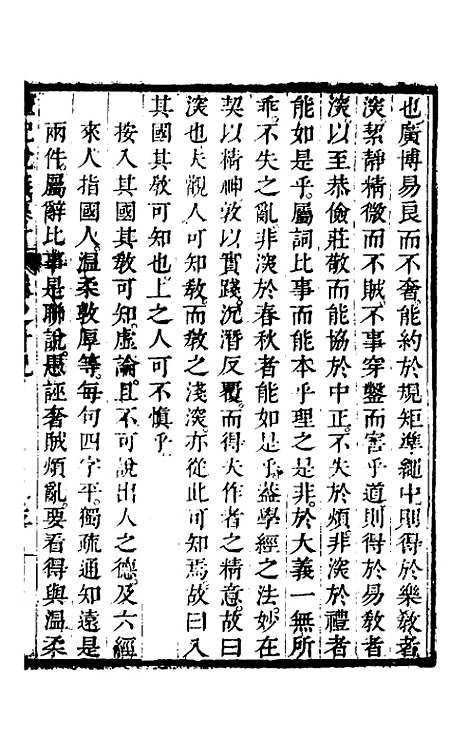 也廣博易良而不奢能約於規矩準繩中則得於樂教者
深絜靜精微而不賊不事穿鑿而害乎道則得於易教者
深以至恭儉莊敬而能協於中正不失於煩非深於禮者
能如是乎屬詞比事而能本乎理之是非於大義一無所
乖不失之亂非深於春秋者能如是乎蓋學經之法妙在
契以精神敦以實踐沉潛反覆而得夫作者之精意故曰
深也夫觀人可知教而教之淺深亦從此可知焉故曰入
其國其教可知也上之人可不慎乎
按入其國其教可知虛論且不可說出人之德及六經
來人指國人溫柔敦厚等每句四字平獨疏通知遠是
兩件屬辭比事是聯說愚誣奢賊煩亂要看得與溫柔